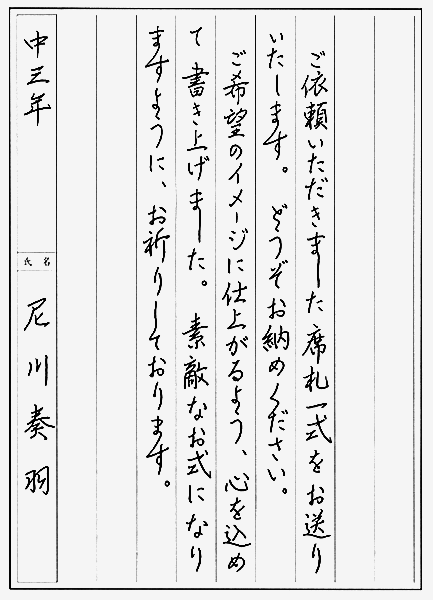 ご依頼いただきました席札一式をお送り
いたします。 どうぞお納めください。
ご希望のイメージに仕上がるよう、心を込め
て書き上げました。 素敵なお式になり
ますように、お祈りしております。
中三年
氏名 尼川奏羽